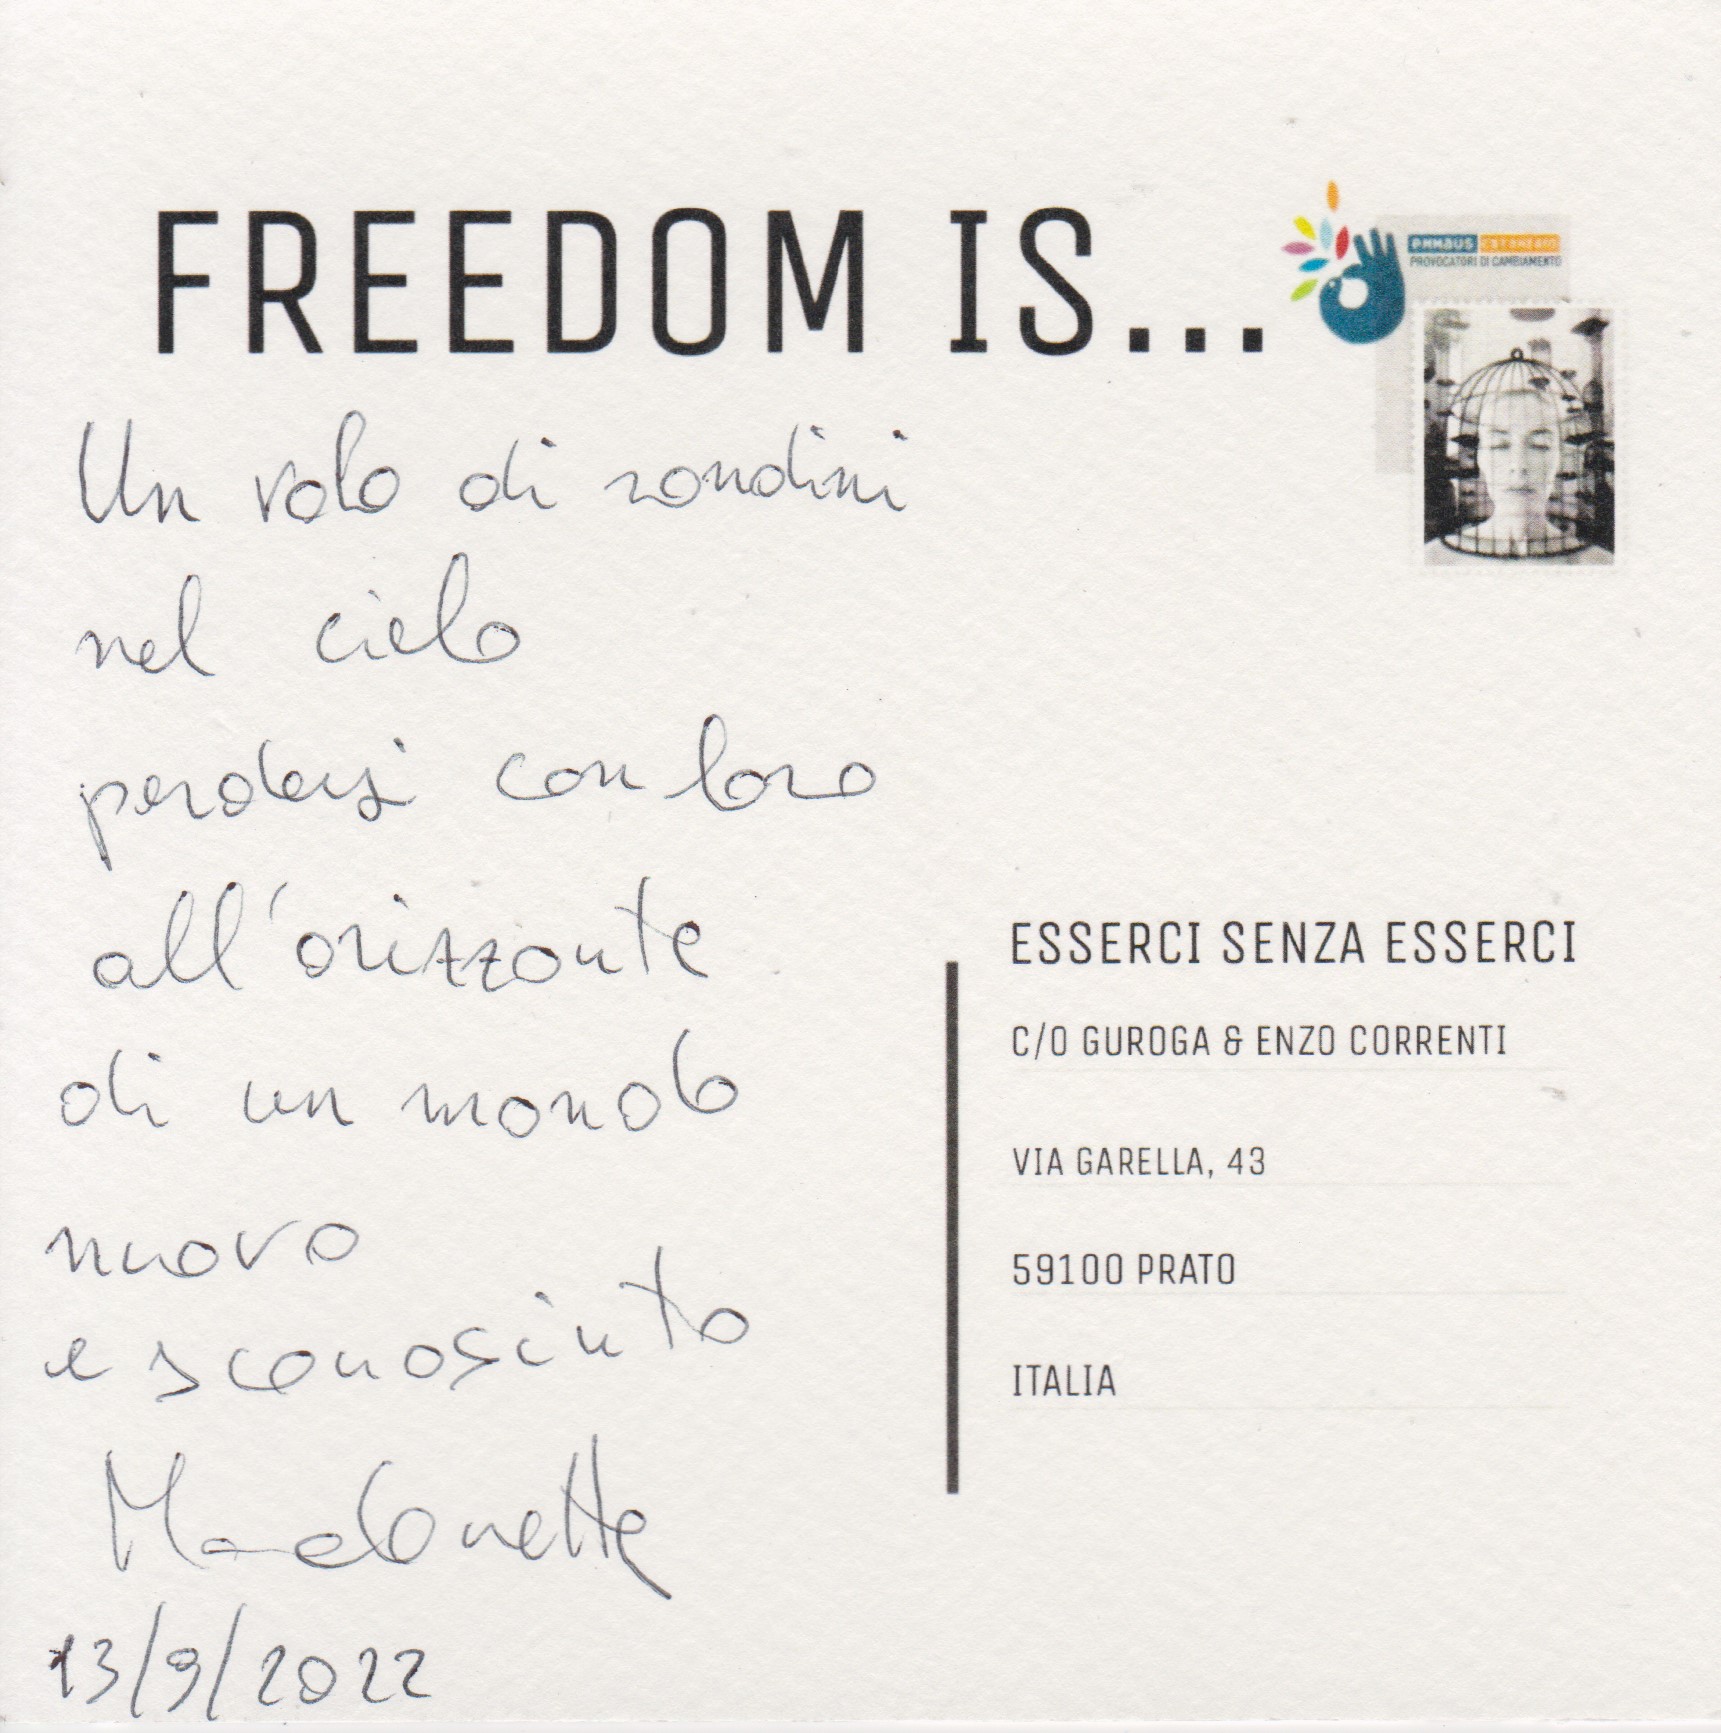 FREEDOM IS...
emmaus catanzaro
PROVOCATORI DI CAMBIAMENTO
Un volo di rondini
nel cielo
perdersi con loro
all'orizzonte
di un mondo
nuovo
e sconosciuto
13/9/2022
ESSERCI SENZA ESSERCI
C/O GUROGA & ENZO CORRENTI
VIA GARELLA, 43
59100 PRATO
ITALIA